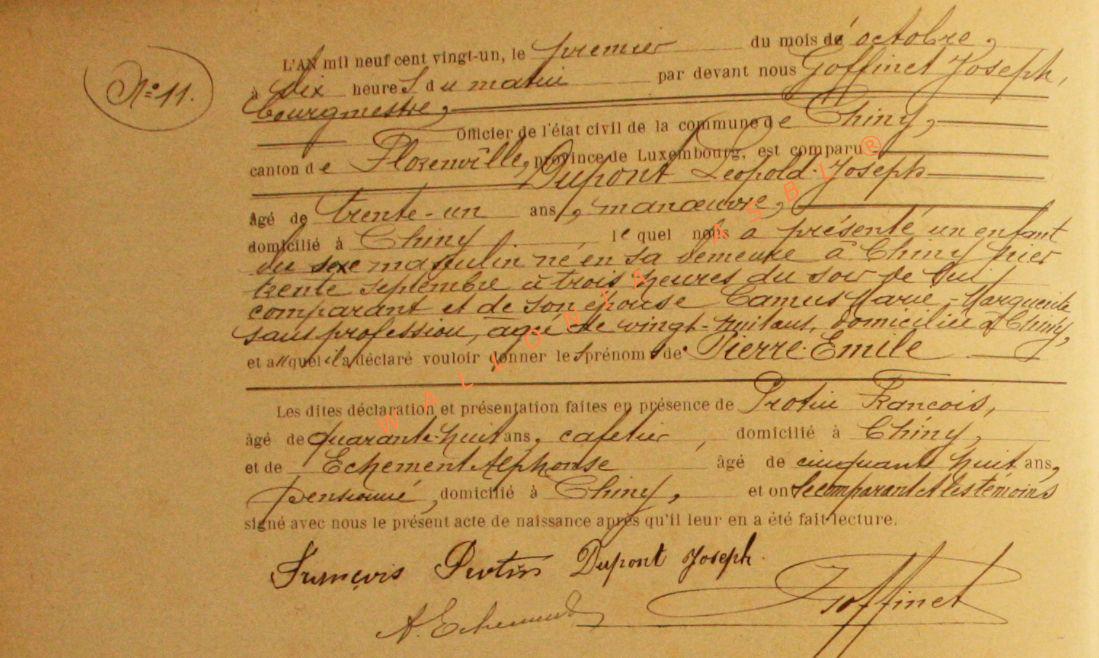 N° 11.
L'AN mil neuf cent vingt-un, le premier du mois de octobre,
à dix heures du matin par devant nous Goffinet Joseph,
bourgmestre,
Officier de l'état civil de la commune de Chiny,
canton de Florenville, province de Luxembourg, est comparu
Dupont Léopold-Joseph
Agé de trente-un ans, manœuvre,
domicilié à Chiny lequel nous a présenté un enfant
du sexe masculin né en sa demeure à Chiny hier
trente septembre à trois heures du soir de lui
comparant et de son épouse Camus Marie-Marguerite
sans profession, agée de vingt-huit ans, domiciliée à Chiny,
et auquel il a déclaré vouloir donner les prénoms de Pierre-Emile
Les dites déclaration et présentation faites en présence de Protin François,
âgé de quarante-huit ans, cafetier, domicilié à Chiny,
et de Echement Alphonse âgé de cinquante huit ans,
pensionné, domicilié à Chiny, et ont le comparant et les témoins
signé avec nous le présent acte de naissance après qu'il leur en a été fait lecture.
François Protin Dupont Joseph.
A. Echement Goffinet